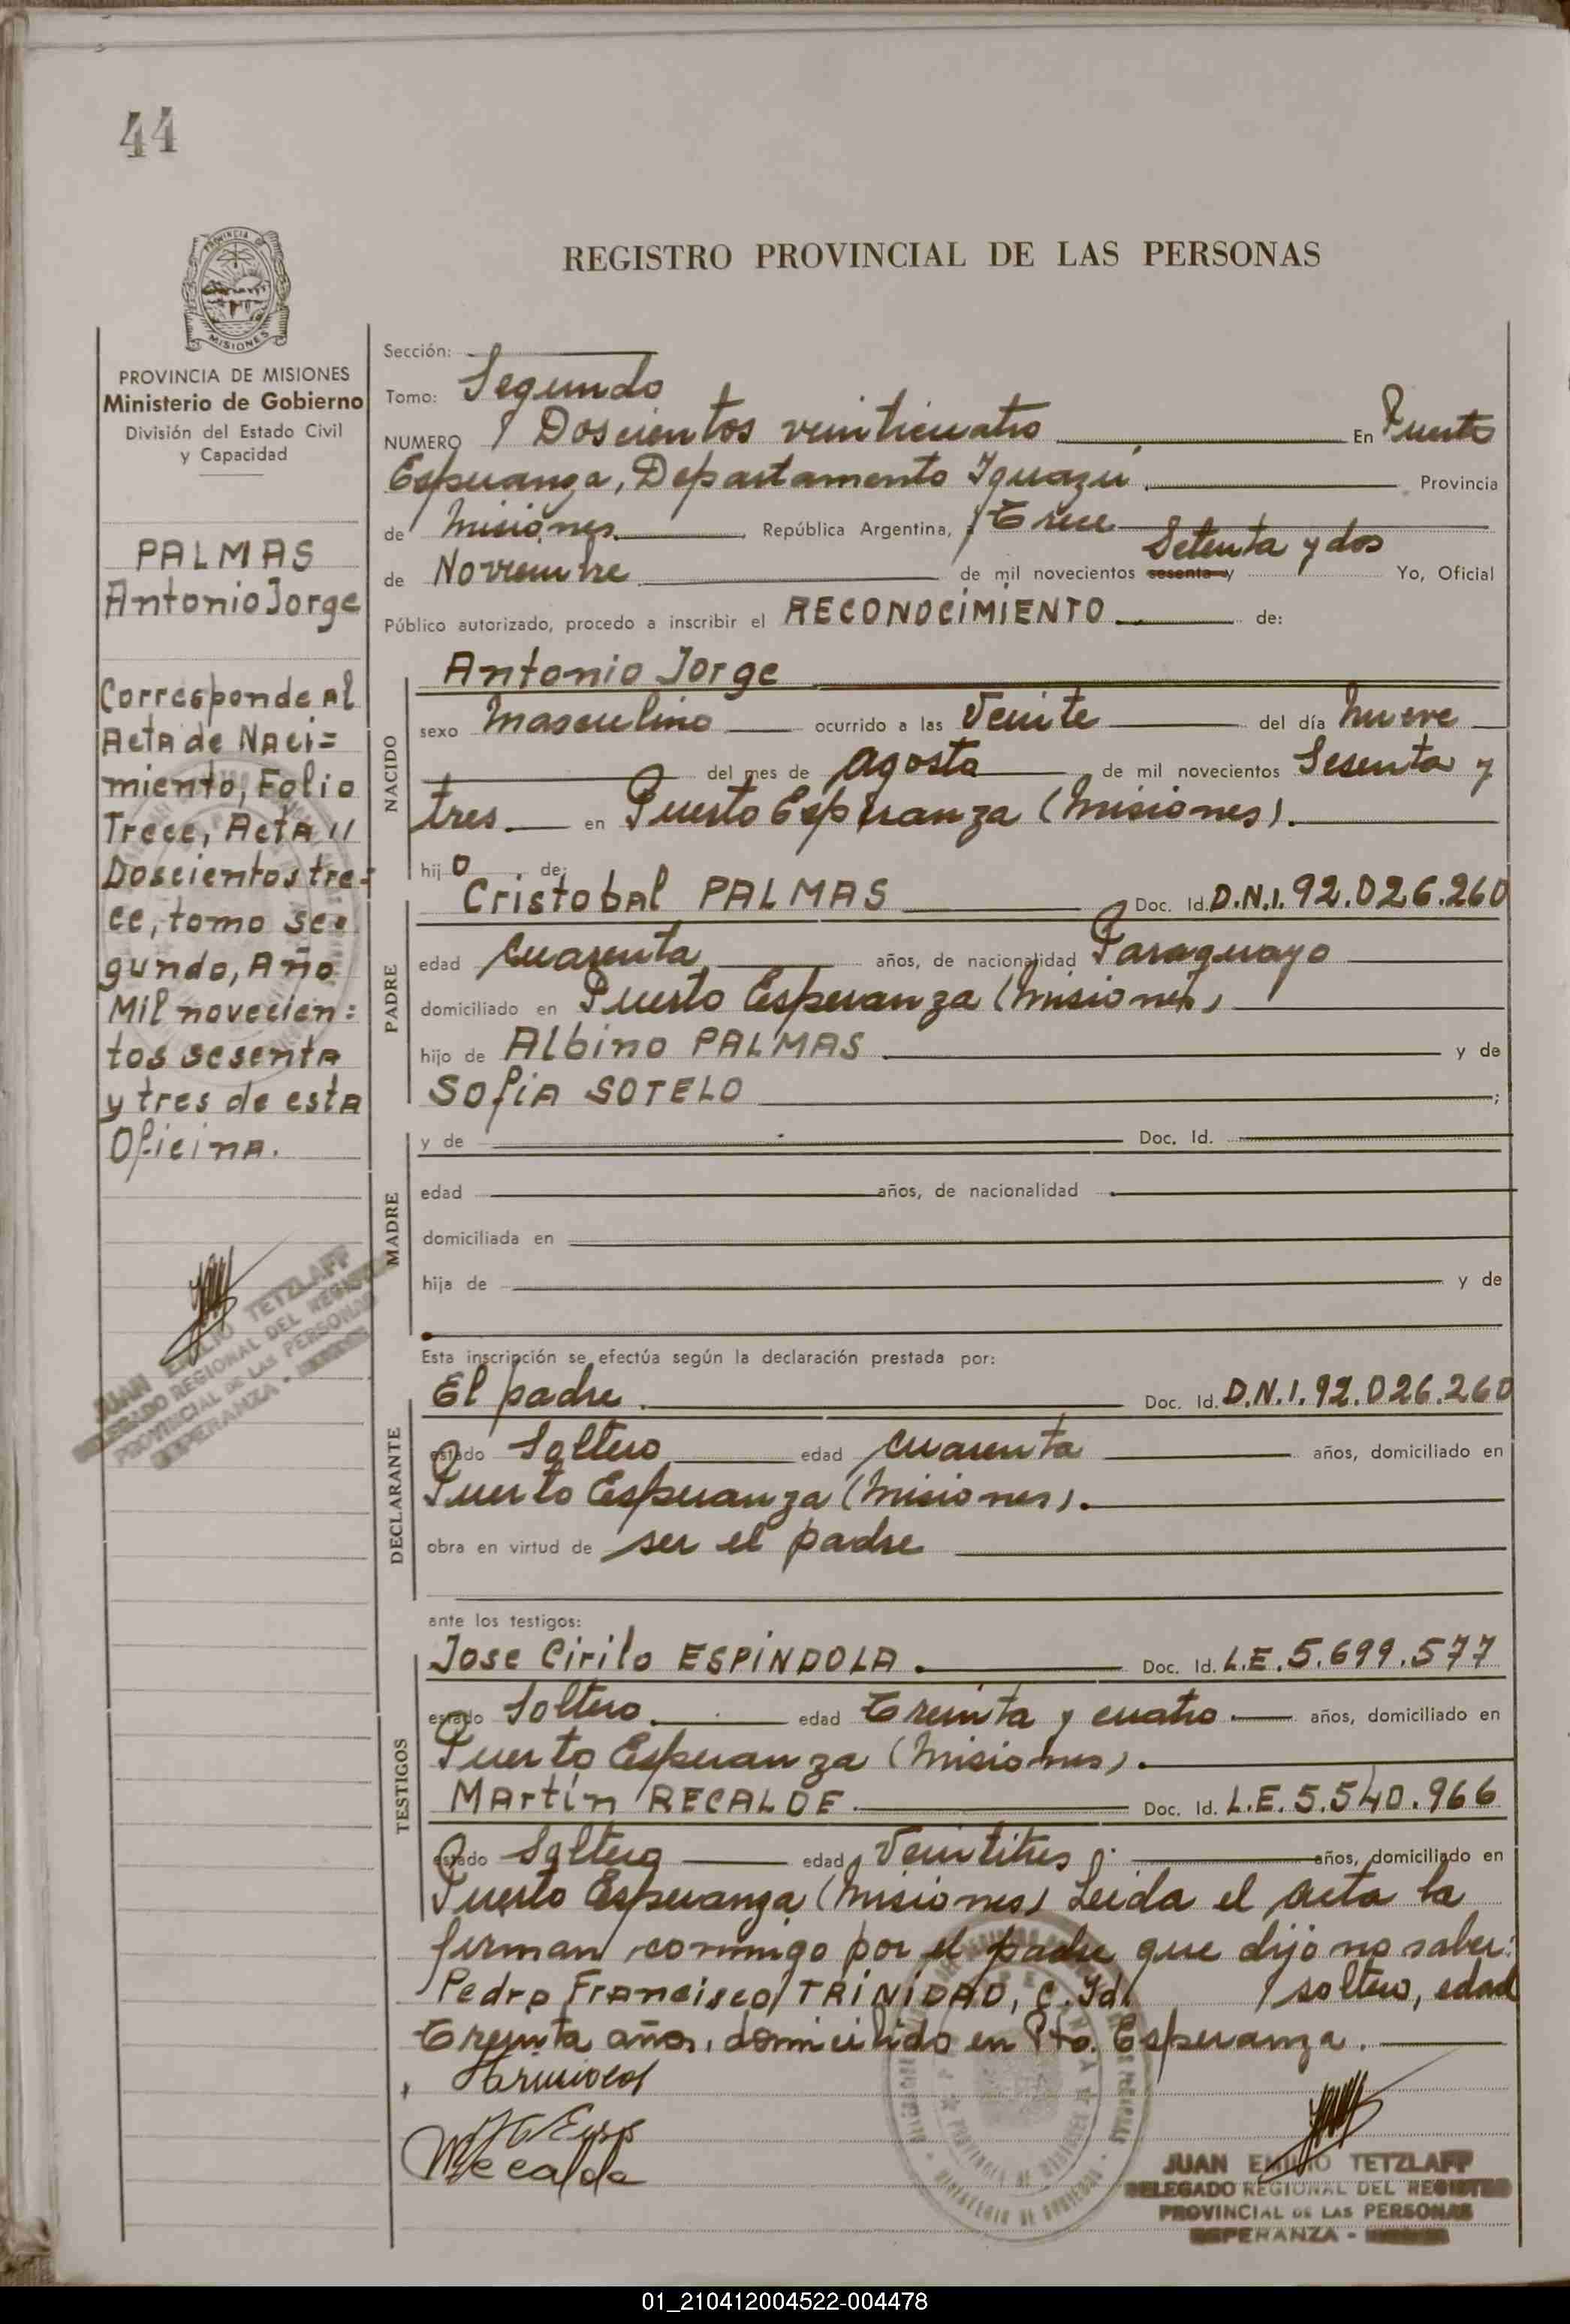 44
PROVINCIA DE
MISIONES
REGISTRO PROVINCIAL DE LAS PERSONAS
PROVINCIA DE MISIONES
Ministerio de Gobierno
División del Estado Civil
y Capacidad
PALMAS
Antonio Jorge
Corresponde Al
Acta de Naci=
miento, Folio
Trece, Acta "
Doscientos tre=
ce, tomo se=
gundo, Año
Mil novecien=
tos sesenta
y tres de esta
Oficina.
JUAN EMILIO TETZLAFF
DELEGADO REGIONAL DEL REGISTRO
PROVINCIAL DE LAS PERSONAS
ESPERANZA -
Sección:
Tomo: Segundo
NUMERO Doscientos veinticuatro En Puerto
Esperanza, Departamento Iguazú. Provincia
de Misiones. República Argentina, a Trece
Setenta y dos
de Noviembre de mil novecientos sesenta y Yo, Oficial
Público autorizado, procedo a inscribir el RECONOCIMIENTO de:
NACIDO
Antonio Jorge
sexo Masculino ocurrido a las Veinte del día Nueve
del mes de Agosto de mil novecientos Sesenta y
tres. en Puerto Esperanza (Misiones).
hijo de:
PADRE
Cristobal PALMAS Doc. Id. D.N.I. 92.026.260
edad Cuarenta años, de nacionalidad Paraguayo
domiciliado en Puerto Esperanza (Misiones)
hijo de Albino PALMAS y de
Sofia SOTELO ;
MADRE
y de Doc. Id.
edad años, de nacionalidad
domiciliada en
hija de y de
Esta inscripción se efectúa según la declaración prestada por:
DECLARANTE
El padre. Doc. Id. D.N.I. 92.026.260
estado Soltero edad Cuarenta años, domiciliado en
Puerto Esperanza (Misiones).
obra en virtud de ser el padre
ante los testigos:
TESTIGOS
Jose Cirilo ESPINDOLA. Doc. Id. L.E. 5.699.577
estado Soltero. edad Treinta y cuatro años, domiciliado en
Puerto Esperanza (Misiones).
Martín RECALDE. Doc. Id. L.E. 5.540.966
estado Soltero edad Veintitres años, domiciliado en
Puerto Esperanza (Misiones) Leida el acta la
firman conmigo por el padre que dijo no saber:
Pedro Francisco TRINIDAD, C. Id. soltero, edad
Treinta años, domicilido en Pto. Esperanza.
Recalde
JUAN EMILIO TETZLAFF
DELEGADO REGIONAL DEL REGISTRO
PROVINCIAL DE LAS PERSONAS
ESPERANZA -
01_210412004522-004478